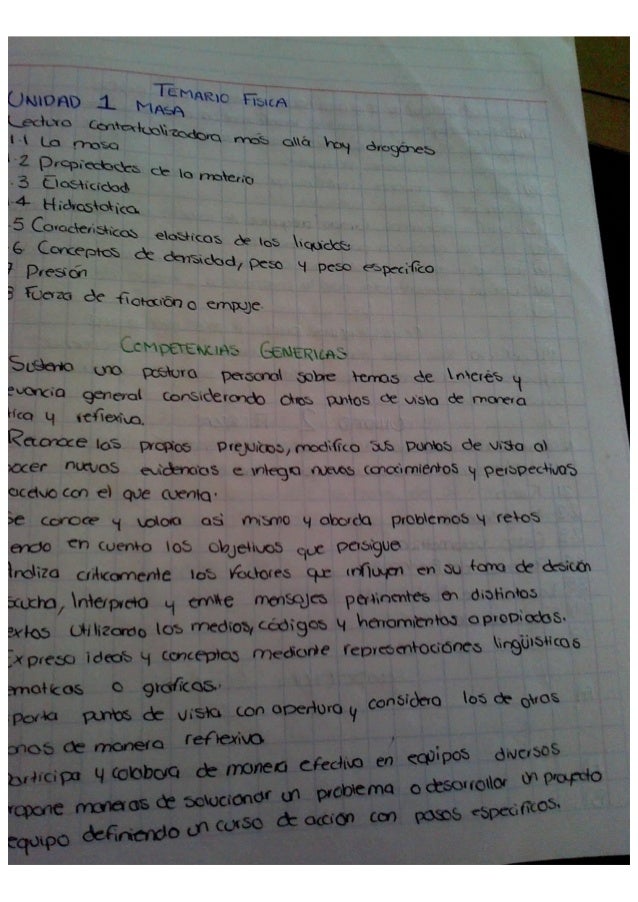 TEMARIO FISICA
UNIDAD 1 MASA
Lectura contextualizadora mas allá hay dragónes
1.1 La masa
.2 Propiedades de la materia
.3 Elasticidad
.4 Hidrostatica
.5 Caracteristicas elasticas de los liquidos
6 Conceptos de densidad, peso y peso especifico
7 Presión
8 Fuerza de flotación o empuje.
COMPETENCIAS GENERICAS
Sustenta una postura personal sobre temas de Interés y
evancia general considerando otros puntos de vista de manera
tica y reflexiva.
Reconoce los propios prejuicios, modifico sus puntos de vista al
ocer nuevas evidencias e integra nuevos conocimientos y perspectivas
acervo con el que cuenta.
Se conoce y valora asi mismo y aborda problemas y retos
endo en cuenta los objetivos que persigue
Analiza criticamente los factores que influyen en su toma de desición
scucha, Interpreta y emite mensajes pertinentes en distintos
extos Utilizando los medios, códigos y herramientas apropiadas.
Expresa ideas y conceptos mediante representaciónes lingüisticas
ematicas o graficas.
porta puntos de vista con apertura y considera los de otras
onas de manera reflexiva
participa y colabora de manera efectiva en equipos diversos
ropone maneras de solucionar un problema o desarrollar un proyecto
equipo definiendo un curso de acción con pasos especificos.